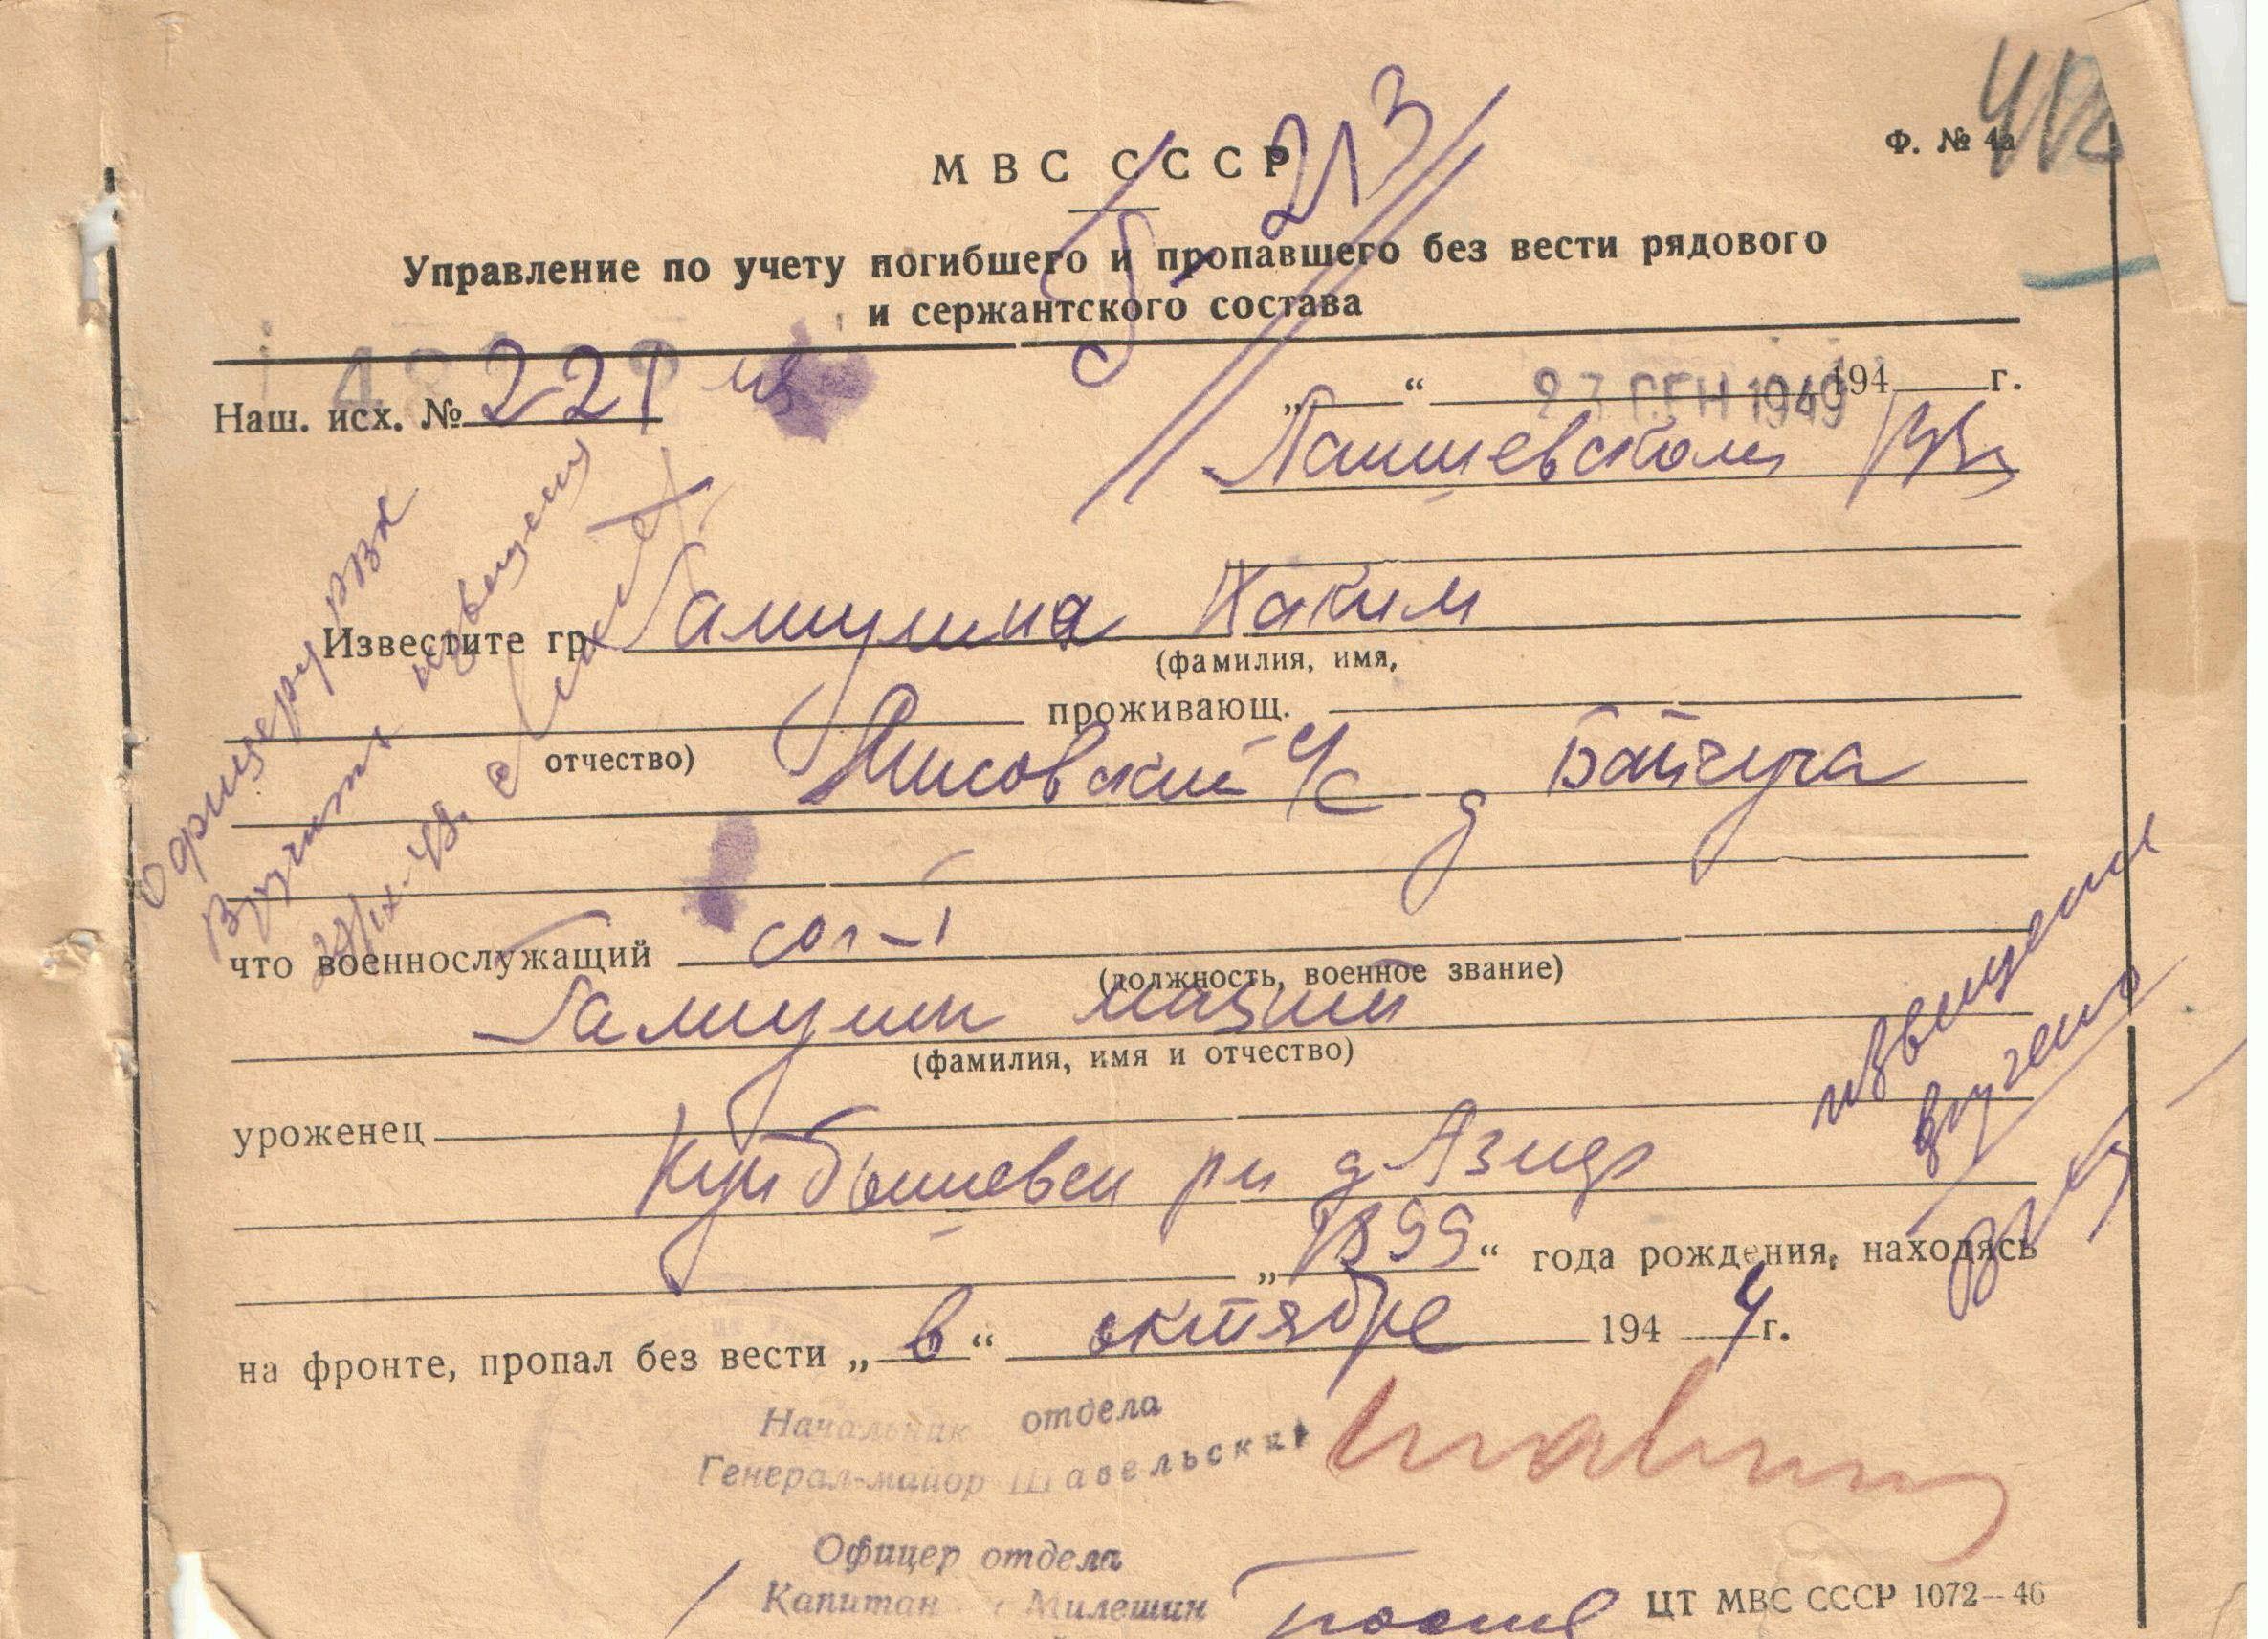 МВС СССР
Ф. № 4а
213
Управление по учету погибшего и пропавшего без вести рядового
и сержантского состава
Наш. исх. № 221
„ “ 27 СЕН 1949 194 г.
Лаишевскому РВК
Известите гр. Гамиулина Хаким
(фамилия, имя,
проживающ.
отчество)
с/с д Байчуга
что военнослужащий сол-т
(должность, военное звание)
Гамиулин
(фамилия, имя и отчество)
уроженец
Куйбышевск рн д
„1899“ года рождения, находясь
на фронте, пропал без вести „в“ октябре 1944 г.
Начальник отдела
Генерал-майор Шавельский
Офицер отдела
Капитан Милешин
ЦТ МВС СССР 1072—46
Офицеру РВК
Вручить извещение
извещение
вручено